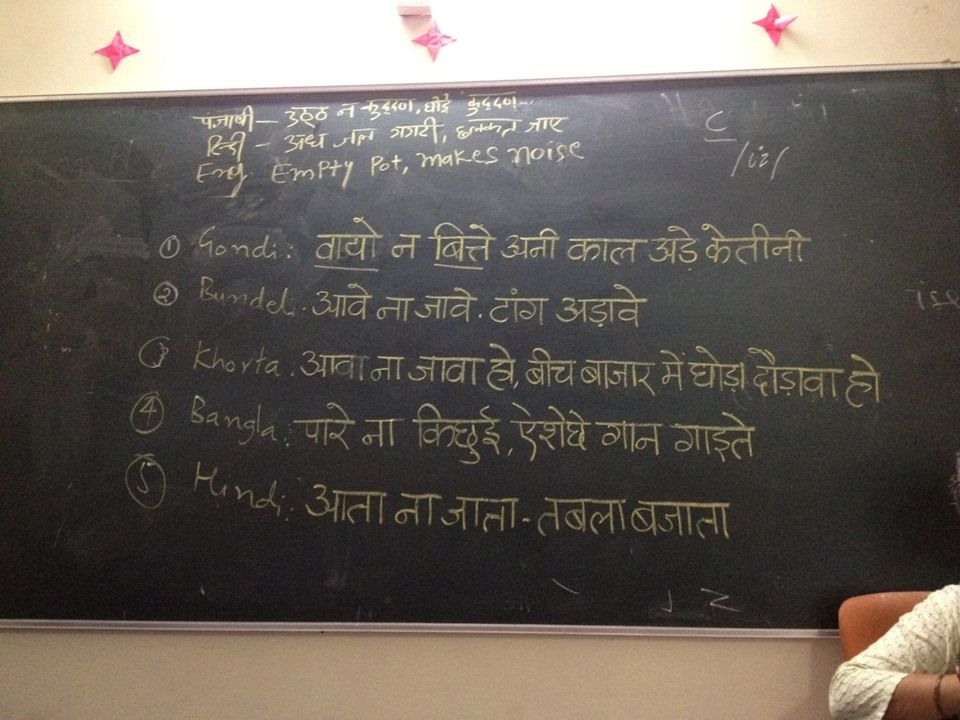 पंजाबी - उठ्ठ न कुद्दण, घोड़े कुद्दण..
हिन्दी - अध जल गगरी, छलकत जाए
Eng. Empty Pot, makes noise
ट
/iz/
① Gondi: वाद्यो न बित्ते अनी काल अड़े केतीनी
② Bundel: आवे ना जावे. टांग अड़ावे
③ Khorta: आवा ना जावा हो, बीच बाजार में घोड़ा दौड़ावा हो
④ Bangla: पारे ना किछुई, ऐशेछे गान गाइते
⑤ Hindi: आता ना जाता - तबला बजाता